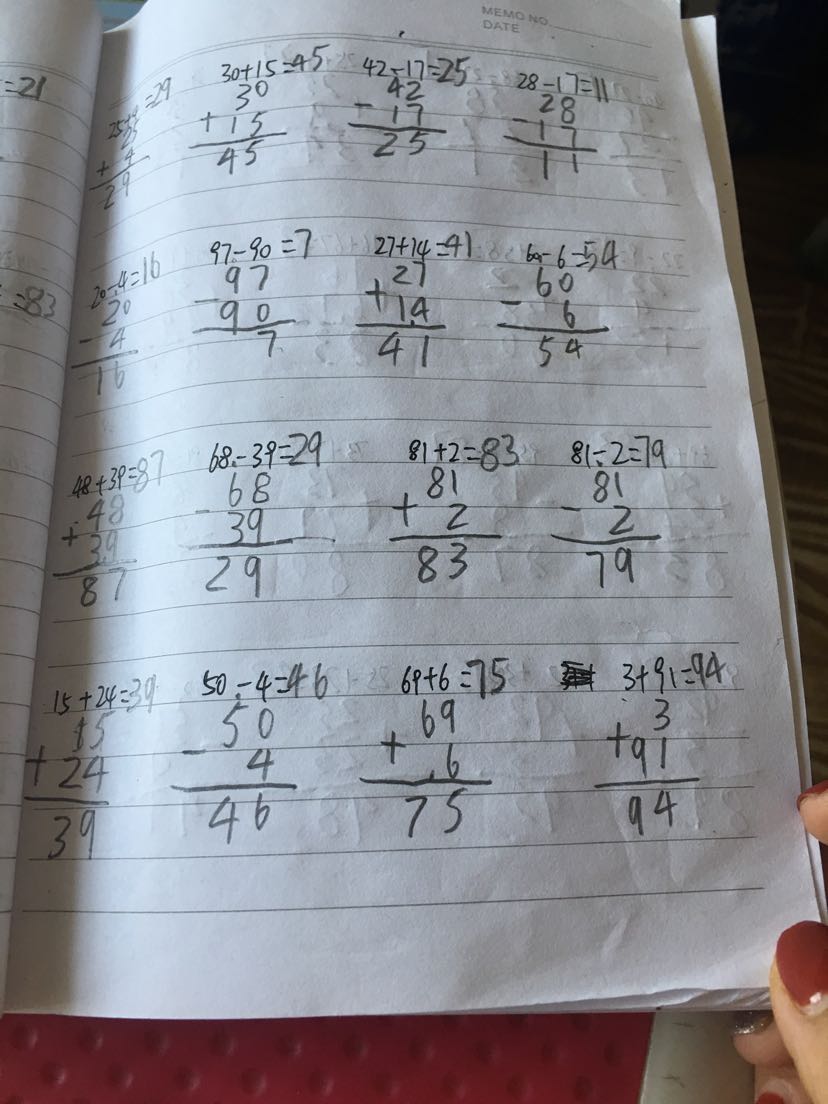 MEMO NO.
DATE
=21
25+4=29 30+15=45 42-17=25 28-17=11
25 30 42 28
+ 4 + 15 - 17 - 17
29 45 25 11
20-4=16 97-90=7 27+14=41 60-6=54
=83
20 97 27 60
- 4 - 90 + 14 - 6
16 7 41 54
48+39=87 68-39=29 81+2=83 81-2=79
48 68 81 81
+ 39 - 39 + 2 - 2
87 29 83 79
15+24=39 50-4=46 69+6=75 3+91=94
15 50 69 3
+ 24 - 4 + 6 + 91
39 46 75 94